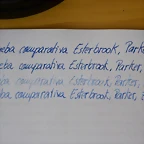 eba comparativa Esterbrook, Parke
eba comparativa Esterbrook, Parker,
eba comparativa Esterbrook, Parker,
ba comparativa Esterbrook, Parker, E